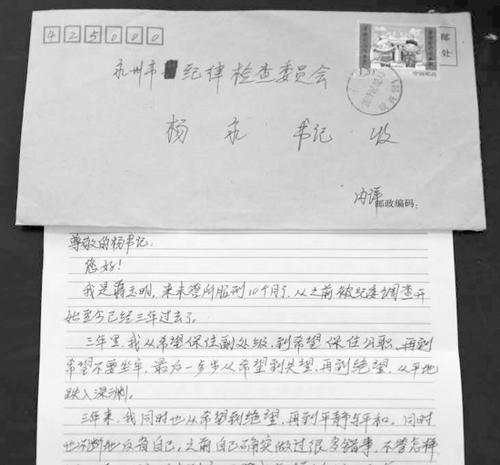 425000
永州市 纪律检查委员会
杨 书记 收
内详
邮政编码:
邮
处
1.20
中国邮政
尊敬的杨书记:
您好!
我是蒋玉明,来 监所服刑10个月了,从之前被纪委调查开
始至今已经三年过去了。
三年里,我从希望保住副处级,到希望保住公职,再到
希望不要坐牢,最后一步步从希望到失望,再到绝望,从平地
跌入深渊。
三年来,我同时也从希望到绝望,再到平静与平和。同时
也不断地反省自己,之前自己确实做过很多错事,不管怎样